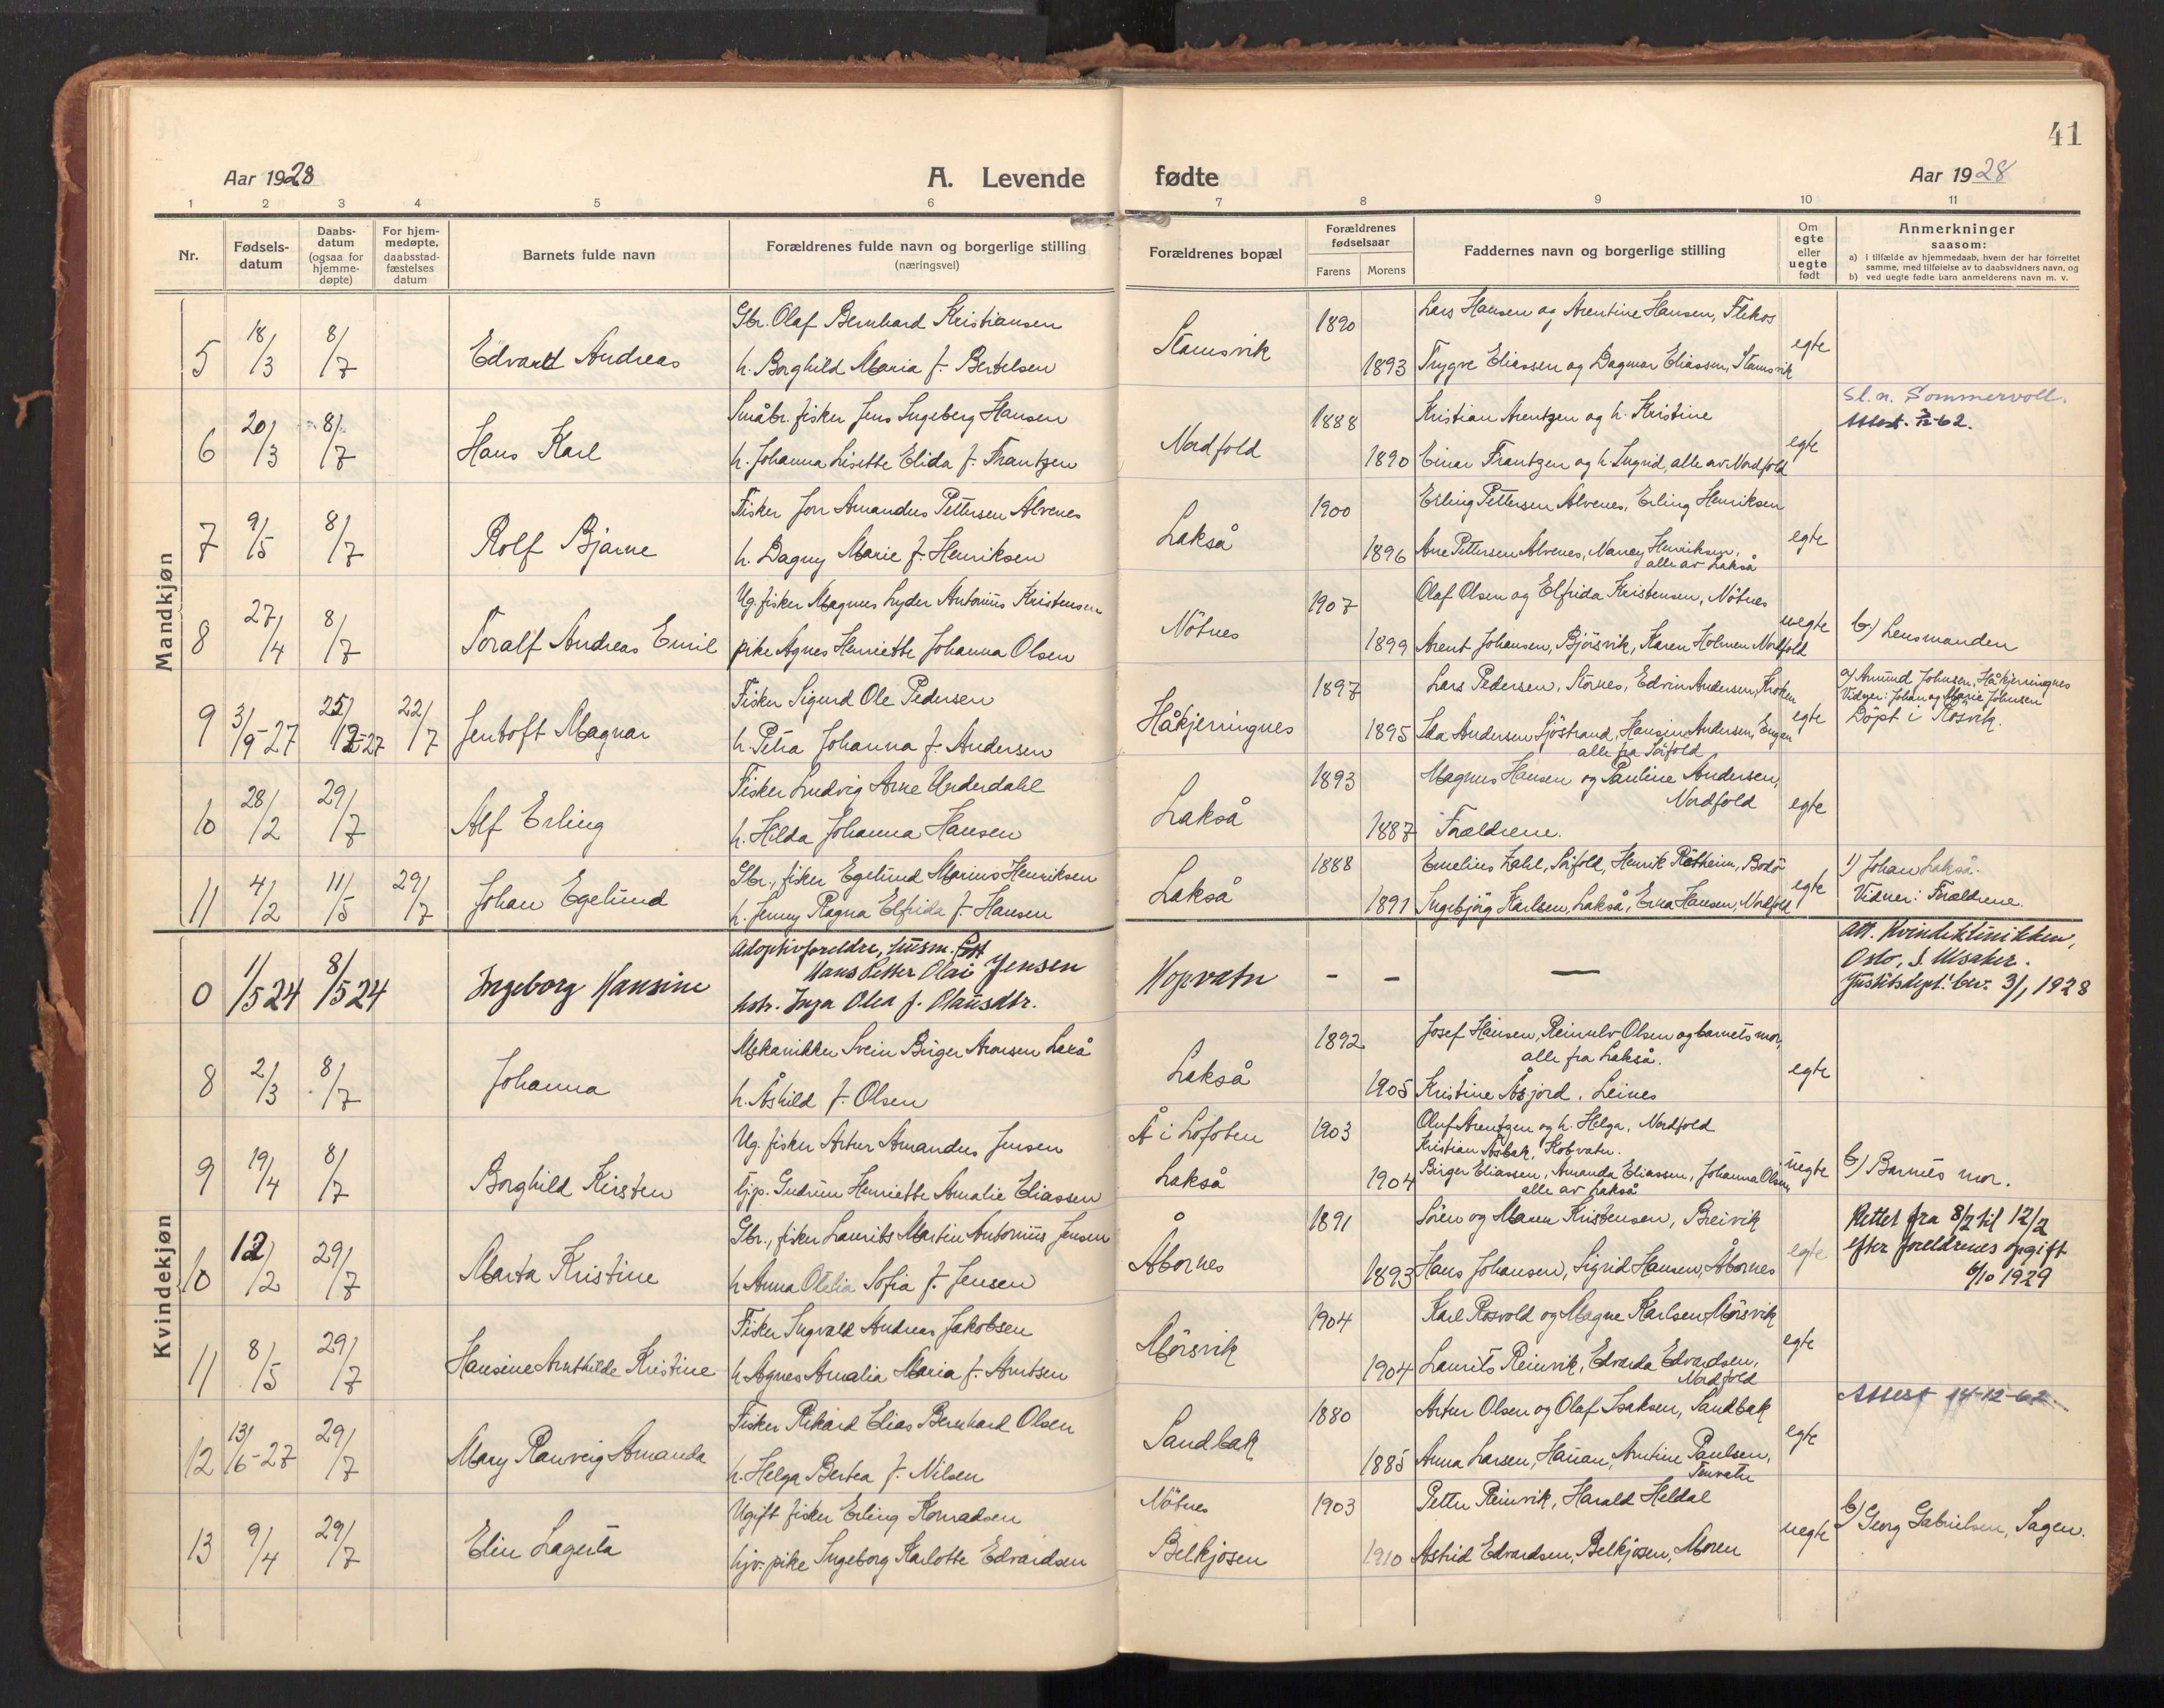 41
Aar 1928 A. Levende fødte Aar 1928
1 2 3 4 5 6 7 8 9 10 11
Nr. Fødsels-datum Daabs-datum (ogsaa for hjemme-døpte) For hjem-medøpte, daabsstad-fæstelses datum Barnets fulde navn Forældrenes fulde navn og borgerlige stilling (næringsvei) Forældrenes bopæl Forældrenes fødselsaar Farens Morens Faddernes navn og borgerlige stilling Om egte eller uegte født Anmerkninger saasom: a) i tilfælde av hjemmedaab, hvem der har forrettet samme, med tilføielse av to daabsvidners navn, og b) ved uegte fødte barn anmelderens navn m. v.
Mandkjøn
5 18/3 8/7 Edvard Andreas Gbr. Olaf Bernhard Kristiansen Stamsvik 1890 Lars Hansen og Arentine Hansen, Flekos egte
h. Borghild Maria f. Bertelsen 1893 Trygve Eliassen og Dagmar Eliassen, Stamsvik
6 20/3 8/7 Hans Karl Småbr. fisker Jens Ingeberg Hansen Nordfold 1888 Kristian Arentzen og h. Kristine egte Sl.n. Sommervoll.
h. Johanna Lisette Elida f. Frantzen 1890 Einar Frantzen og h. Ingrid, alle av Nordfold Attest.
7 9/5 8/7 Rolf Bjarne Fisker Jon Amandus Pettersen Alvenes Lakså 1900 Erling Pettersen Alvenes, Erling Henriksen egte
h. Dagny Marie f. Henriksen 1896 Arne Pettersen Alvenes, Nancy Henriksen,
alle av Lakså
8 27/4 8/7 Toralf Andreas Emil Ug. fisker Magnus Lyder Antonius Kristensen Nötnes 1907 Olaf Olsen og Elfrida Kristensen, Nötnes uegte b) Lensmanden
pike Agnes Henriette Johanna Olsen 1899 Arent Johansen, Bjørsvik, Karen Holmen Nordfold
9 3/9-27 25/12-27 22/7 Jentoft Magnar Fisker Sigurd Ole Pedersen Håkjerringnes 1897 Lars Pedersen, Störnes, Edvin Andersen, Kroken egte a) Amund Johnsen, Håkjerringnes
Vidner: Johan og Marie Johnsen
h. Petra Johanna f. Andersen 1895 Ida Andersen Sjöstrand, Hansine Andersen, Engan Döpt i Rösvik.
alle fra Sörfold
10 28/2 29/7 Alf Erling Fisker Ludvig Arne Underdahl Lakså 1893 Magnus Hansen og Pauline Andersen, egte
Nordfold
h. Hilda Johanna Hansen 1887 Forældrene.
11 4/2 11/5 29/7 Johan Egelund Gbr., fisker Egelund Marius Henriksen Lakså 1888 Emelius Zahl, Sörfold, Henrik Rötheim, Bodö egte 1) Johan Lakså.
h. Jenny Ragna Elfrida f. Hansen 1891 Ingebjörg Karlsen, Lakså, Erna Hansen, Nordfold Vidner: Forældrene.
Kvindekjøn
0 1/5 24 8/5 24 Ingeborg Hansine Adoptivforeldre, husm.
Hans Petter Olai Jensen Hopvatn - - — Att. Kvindeklinikken,
Oslo, S. Usaker.
hstr. Inga Olea f. Olausdtr. Justitsdept. bev. 3/1, 1928
8 2/3 8/7 Johanna Mekanikker Svein Birger Aronsen Lakså Lakså 1892 Josef Hansen, Reinulv Olsen og barnets mor, egte
alle fra Lakså.
h. Åshild f. Olsen 1905 Kristine Åsjord. Leines
9 19/4 8/7 Borghild Kirsten Ug. fisker Artur Amandus Jensen Å i Lofoten 1903 Oluf Arentzen og h. Helga, Nordfold uegte b) Barnets mor.
Kristian Åsbak, Kobvatn.
tjp. Gudrun Henriette Amalie Eliassen Lakså 1904 Birger Eliassen, Amanda Eliassen, Johanna Olsen
alle av Lakså
10 12/2 29/7 Marta Kristine Gbr., fisker Laurits Martin Antonius Jensen Åbornes 1891 Sören og Maren Kristensen, Breivik egte Rettet fra 8/2 til 12/2
efter foreldrenes opgift
h. Anna Otelia Sofia f. Jensen 1893 Hans Johansen, Sigrid Hansen, Åbornes 6/10 1929
11 8/5 29/7 Hansine Arnthilde Kristine Fisker Ingvald Andreas Jakobsen Mörsvik 1904 Karl Rosvold og Magne Karlsen, Mörsvik egte
h. Agnes Amalia Maria f. Arntsen 1904 Laurits Reinvik, Edvarda Edvardsen,
Nordfold
12 13/6-27 29/7 Mary Ranveig Amanda Fisker Rikard Elias Bernhard Olsen Sandbak 1880 Artur Olsen og Olaf Isaksen, Sandbak egte Attest 14-12-62.
h. Helga Bertea f. Nilsen 1885 Anna Larsen, Hauan, Arntine Paulsen,
Tenvatn
13 9/4 29/7 Elin Lagerta Ugift fisker Erling Konradsen Nötnes 1903 Petter Reinvik, Harald Heldal uegte b) Georg Gabrielsen, Sagen.
hjv. pike Ingeborg Karlotte Edvardsen Belkjosen 1910 Astrid Edvardsen, Belkjosen, Moren